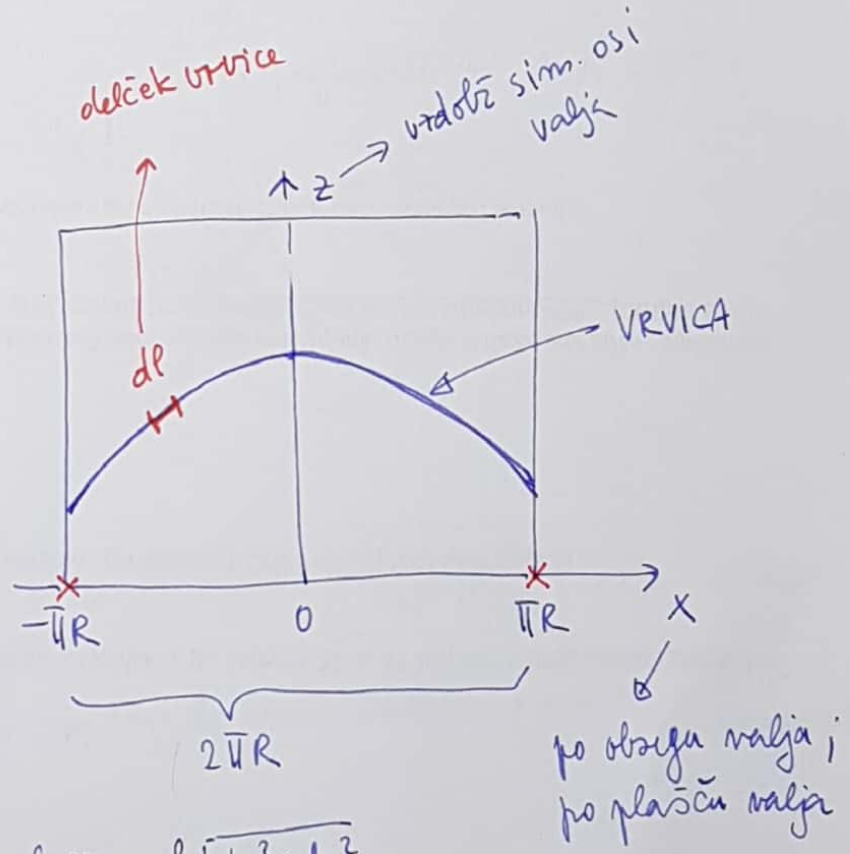 delček vrvice
z → vzdolž sim. osi
valja
VRVICA
dl
-πR 0 πR x
2πR
po obsegu valja ;
po plašču valja